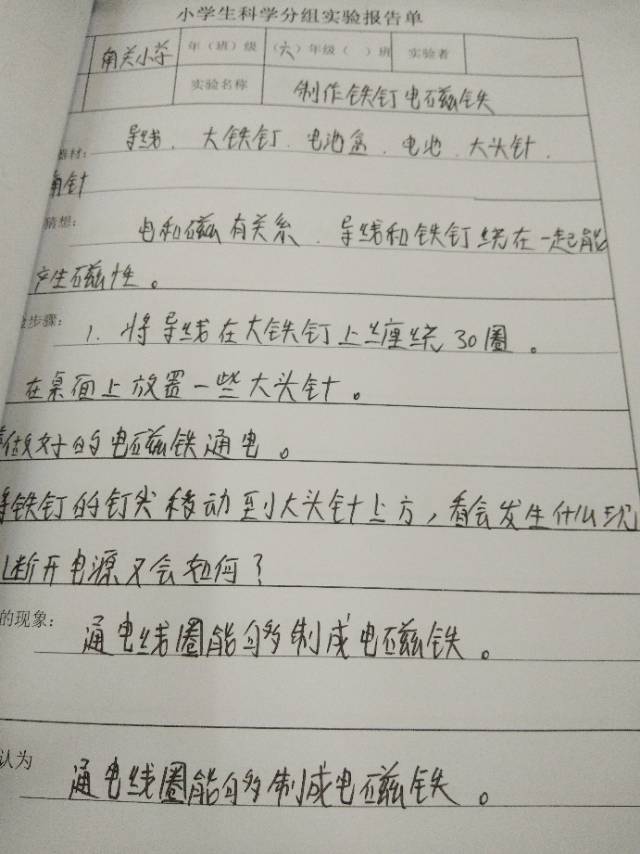 小学生科学分组实验报告单
南关小学 年（班）级 （六）年级（ ）班 实验者
实验名称 制作铁钉电磁铁
器材： 导线、大铁钉、电池盒、电池、大头针、
南针
猜想： 电和磁有关系、导线和铁钉绕在一起能
产生磁性。
步骤： 1. 将导线在大铁钉上缠绕30圈。
在桌面上放置一些大头针。
做好的电磁铁通电。
将铁钉的钉尖移动到大头针上方，看会发生什么现
断开电源又会如何？
的现象： 通电线圈能够制成电磁铁。
认为 通电线圈能够制成电磁铁。